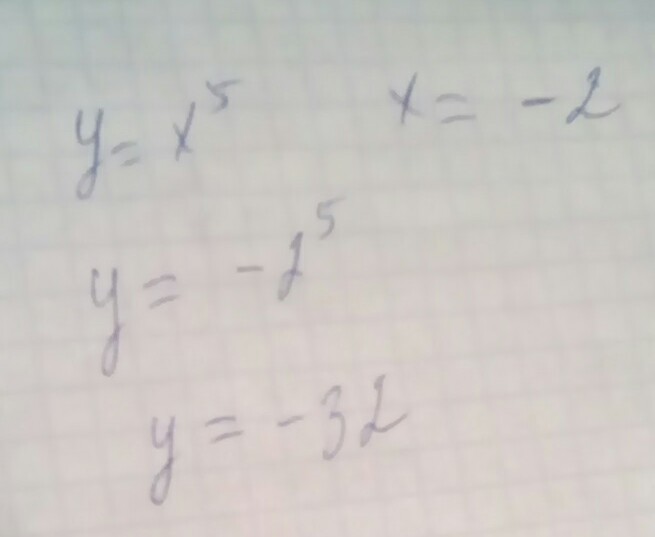 y = x⁵ x = -2
y = -2⁵
y = -32